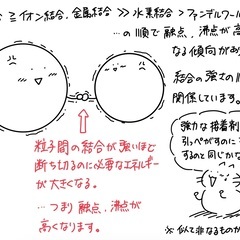 ≧イオン結合, 金属結合 ≫ 水素結合 > ファンデルワール
…の順で融点, 沸点が高
なる傾向があ
結合の強さの川
関係しています。
粒子間の結合が強いほど
断ち切るのに必要なエネルギー
が大きくなる。
…つまり融点, 沸点が
高くなります。
強力な接着剤
引っぺがすのに
するのと同じかな
※ 似て非なるものか